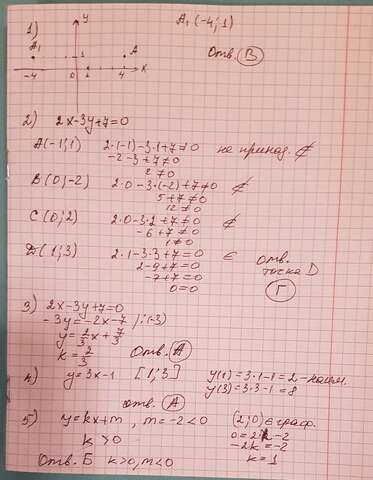 1)
y
A₁(-4;1)
A₁ 1 A
-4 0 1 4 x
Отв. В
2) 2x-3y+7=0
A(-1;1) 2·(-1)-3·1+7≠0 не принад. ∉
-2-3+7≠0
2≠0
B(0;-2) 2·0-3·(-2)+7≠0 ∉
5+7≠0
12≠0
C(0;2) 2·0-3·2+7≠0 ∉
-6+7≠0
1≠0
D(1;3) 2·1-3·3+7=0 ∈ отв.
2-9+7=0 точка D
-7+7=0 Г
0=0
3) 2x-3y+7=0
-3y=-2x-7 /:(-3)
y=2/3x+7/3
k=2/3 Отв. А
4) y=3x-1 [1;3] y(1)=3·1-1=2-наим.
y(3)=3·3-1=8
отв. А
5) y=kx+m, m=-2<0 (2;0)∈граф.
k>0 0=2k-2
-2k=-2
Отв. Б k>0, m<0 k=1